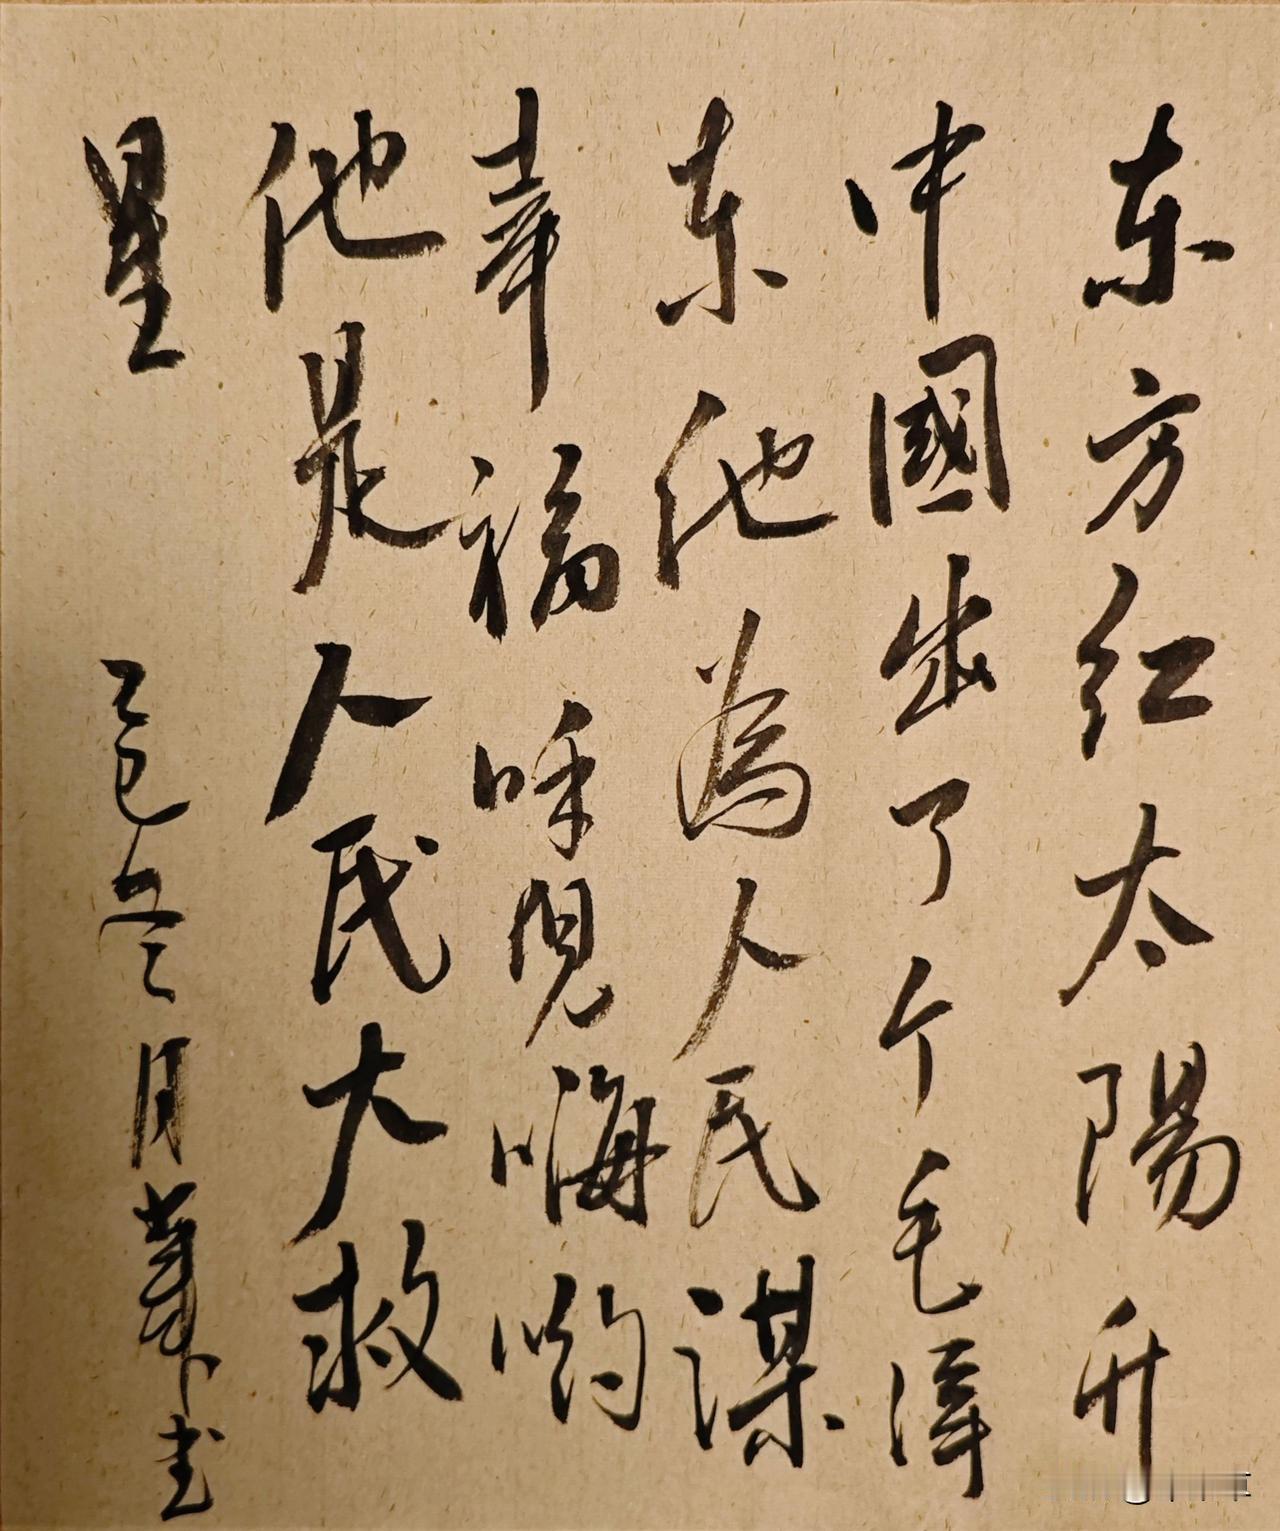 东方红太陽升
中國出了个毛澤
东他為人民謀
幸福呼児嗨哟
他是人民大救
星
乙巳冬月華书